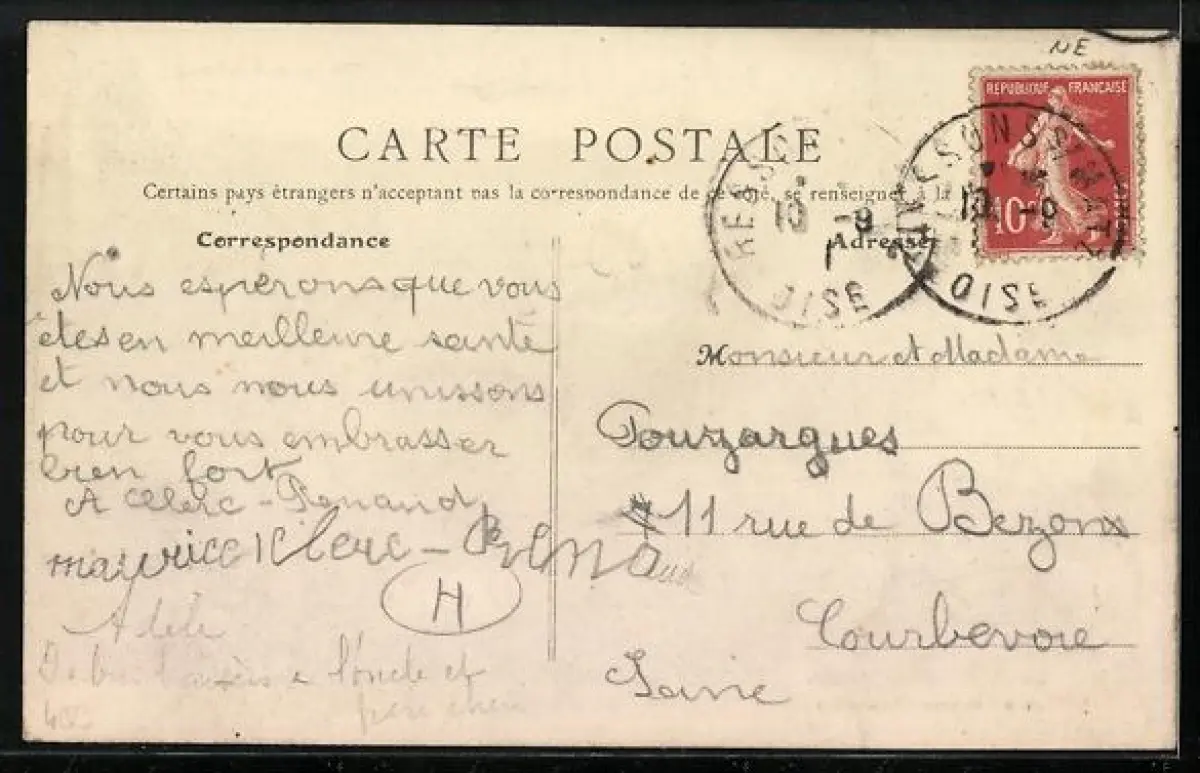 NE
REPUBLIQUE FRANÇAISE
10
CARTE POSTALE
Certains pays étrangers n'acceptant pas la correspondance de ce côté, se renseigner à la
RESS
10 -9
1
OISE
RESSONS S MATZ
10 -9
OISE
Correspondance
Adresse
Nous espérons que vous
êtes en meilleure santé
et nous nous unissons
pour vous embrasser
bien fort
A Clerc-Renaud
maurice Clerc-Renaud
H
Adèle
à l'oncle et
Monsieur et Madame
Pouzargues
11 rue de Bezons
Courbevoie
Seine